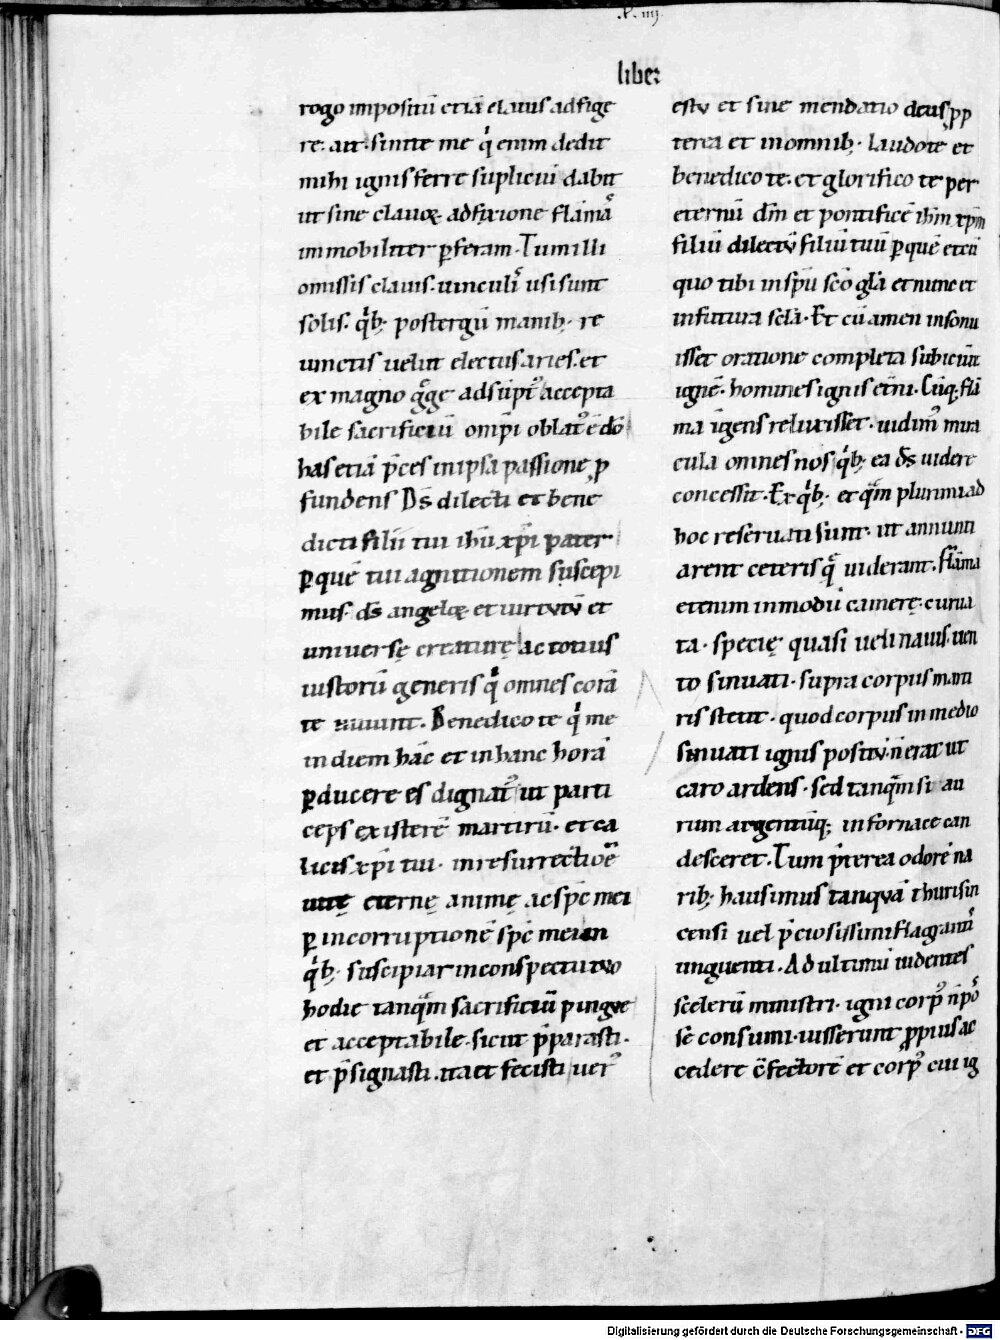 .P. iiij.
liber
rogo impositū etiā clauis adfige
re. ait. sinite me q̇ enim dedit
mihi ignis ferre supliciū dabit
ut sine clauoꝝ adfixione flāmā
immobiliter ꝑferam. Tum illi
omissis clauis. uinculi᷒ usi sunt
solis. q̇b; postergū manib; re
uinctis uelut electus aries. et
ex magno g̊ge adsūpt᷒ accepta
bile sacrificiū om̄pi oblat᷒ ē dō
has etiā p̄ces in ipsa passione ꝓ
fundens Ds̄ dilecti et bene
dicti filii tui ihū xp̄i pater
ꝑ quē tui agnitionem suscepi
mus. ds̄ angeloꝝ et uirtutū et
uniuersę creaturę ac totius
iustorū generis q̇ omnes corā
te uiuunt. Benedico te q̇ me
in diem hāc et in hanc horā
ꝑducere es dignat᷒ ut parti
ceps existerē martirū. et ca
licis xp̄i tui. in resurrectiōē
uitę eternę animę ac sp̄c mei
ꝑ incorruptionē sp̄c mei in
q̇b; suscipiar in conspectu tuo
hodie tanq̄m sacrificiū pingue
et acceptabile. sicut p̄parasti.
et p̄signasti. ita et fecisti uer᷒
estu et sine mendatio deus ꝓp
terea et in omnib; laudo te et
benedico te. et glorifico te per
eternū dm̄ et pontificē ihm̄ xp̄m
filiū dilectū filiū tuū ꝑ quē et cū
quo tibi in sp̄u sc̄o gl̄a et nunc et
in futura sc̄la. Et cū amen insonu
isset oratione completa subiciūt
ignē. homines ignis et̄ni. Cūq; flā
ma īgens reluxisset. uidim᷒ mira
cula omnes nos q̇b; ea ds̄ uidere
concessit. Ex q̇b; et q̄m plurimi ad
hoc reseruati sunt. ut annunti
arent ceteris q̄ uiderant. Flāma
etenim in modū camerę curua
ta. specię quasi ueli nauis uen
to sinuati. supra corpus marti
ris stetit. quod corpus in medio
sinuati ignis positū. n̄ erat ut
caro ardens. sed tanq̄m si au
rum argentūq; in fornace can
desceret. Tum p̄terea odorē na
rib; hausimus tanquā thuris in
censi uel p̄ciosissimi flagranti᷒
unguenti. Ad ultimū uidentes
scelerū ministri. igni corp᷒ n̄ po᷒
sē consumi. iusserunt ꝓpius ac
cedere c̄fectorē et corp᷒ cui ig
Digitalisierung gefördert durch die Deutsche Forschungsgemeinschaft - DFG